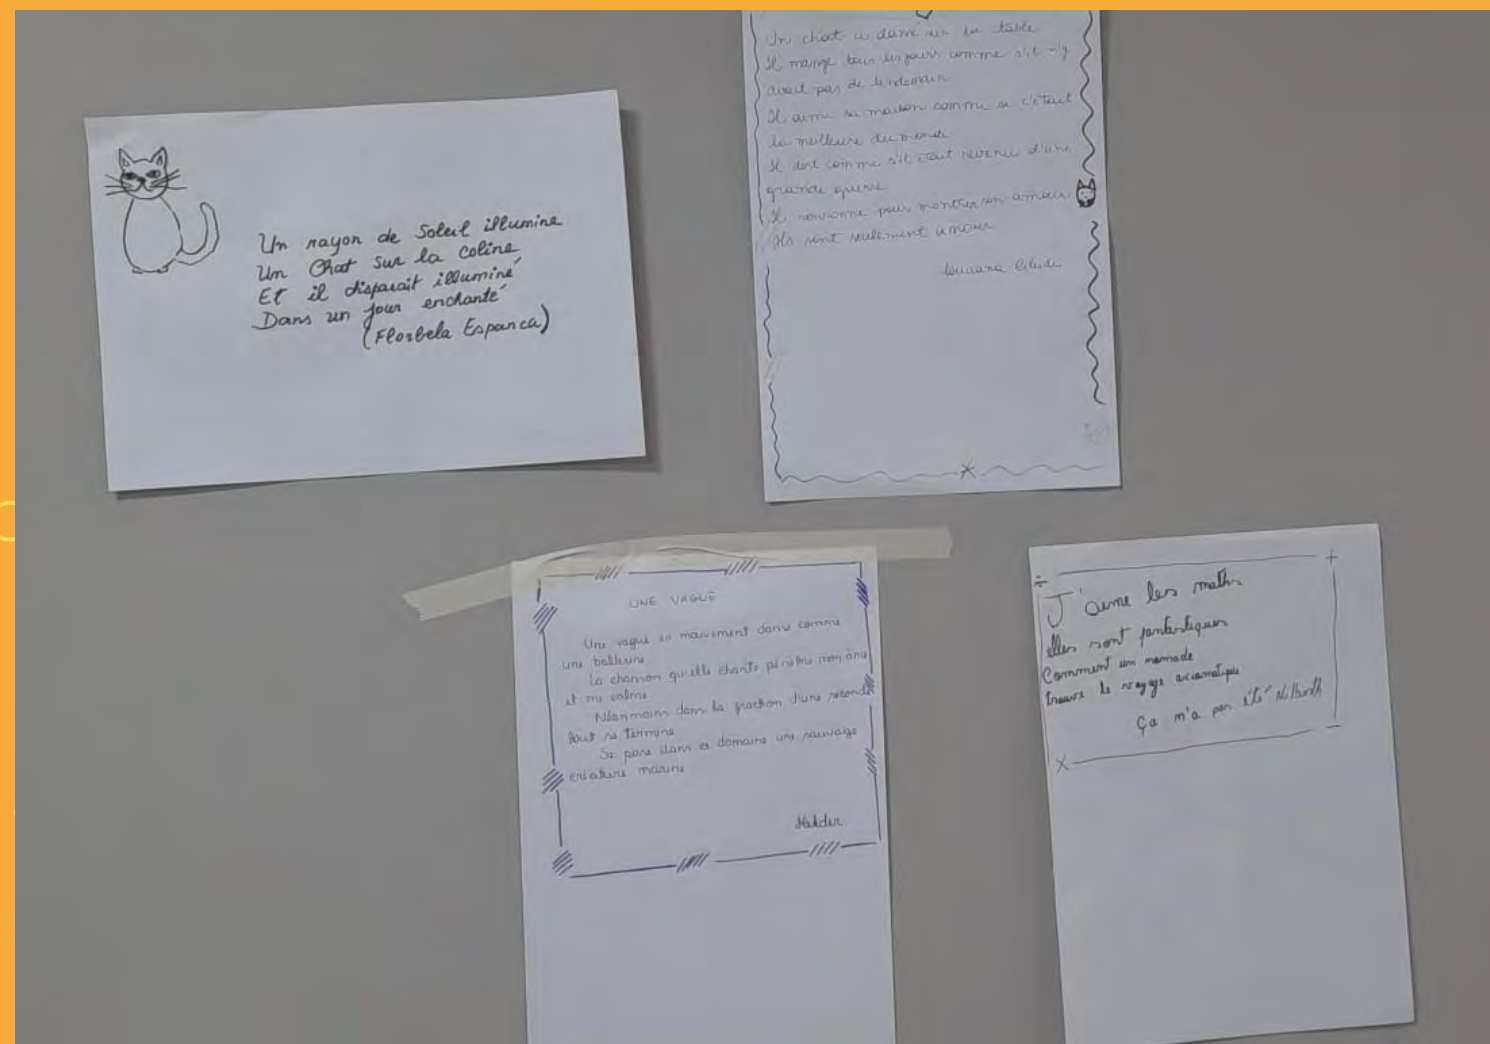 Un rayon de Soleil illumine
Un Chat sur la coline
Et il disparait illuminé
Dans un jour enchanté
(Florbela Espanca)
Un chat a dansé sur la table
Il mange tous les jours comme s'il n'y
avait pas de lendemain
Il aime sa maison comme si c'était
la meilleure du monde
Il dort comme s'il était revenu d'une
grande guerre
Il ronronne pour montrer son amour
Ils sont seulement amour
UNE VAGUE
Une vague en mouvement danse comme
une baleine
La chanson qu'elle chante pénètre mon âme
et me calme
Néanmoins dans la fraction d'une seconde
tout se termine
Se pose dans ce domaine une sauvage
créature marine
Helder
J'aime les maths
elles sont fantastiques
Comment un nomade
trouve le voyage axiomatique
Ça m'a pas été